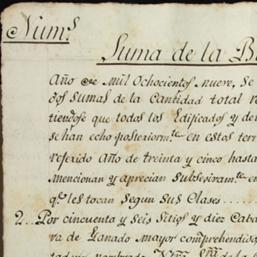 Num.s
Suma de la B
Año de Mil Ochocientos Nueve, se
dos sumas de la Cantidad total re
tiendose que todos los Edificados y de
se han echo posteriorm.te en estos terr
referido Año de treinta y cinco hasta
mencionan y aprecian subsesivam.te en
q.e les tocan segun sus Clases
2.. Por cincuenta y seis Sitios y diez Caba
ra de Ganado mayor comprehendidos